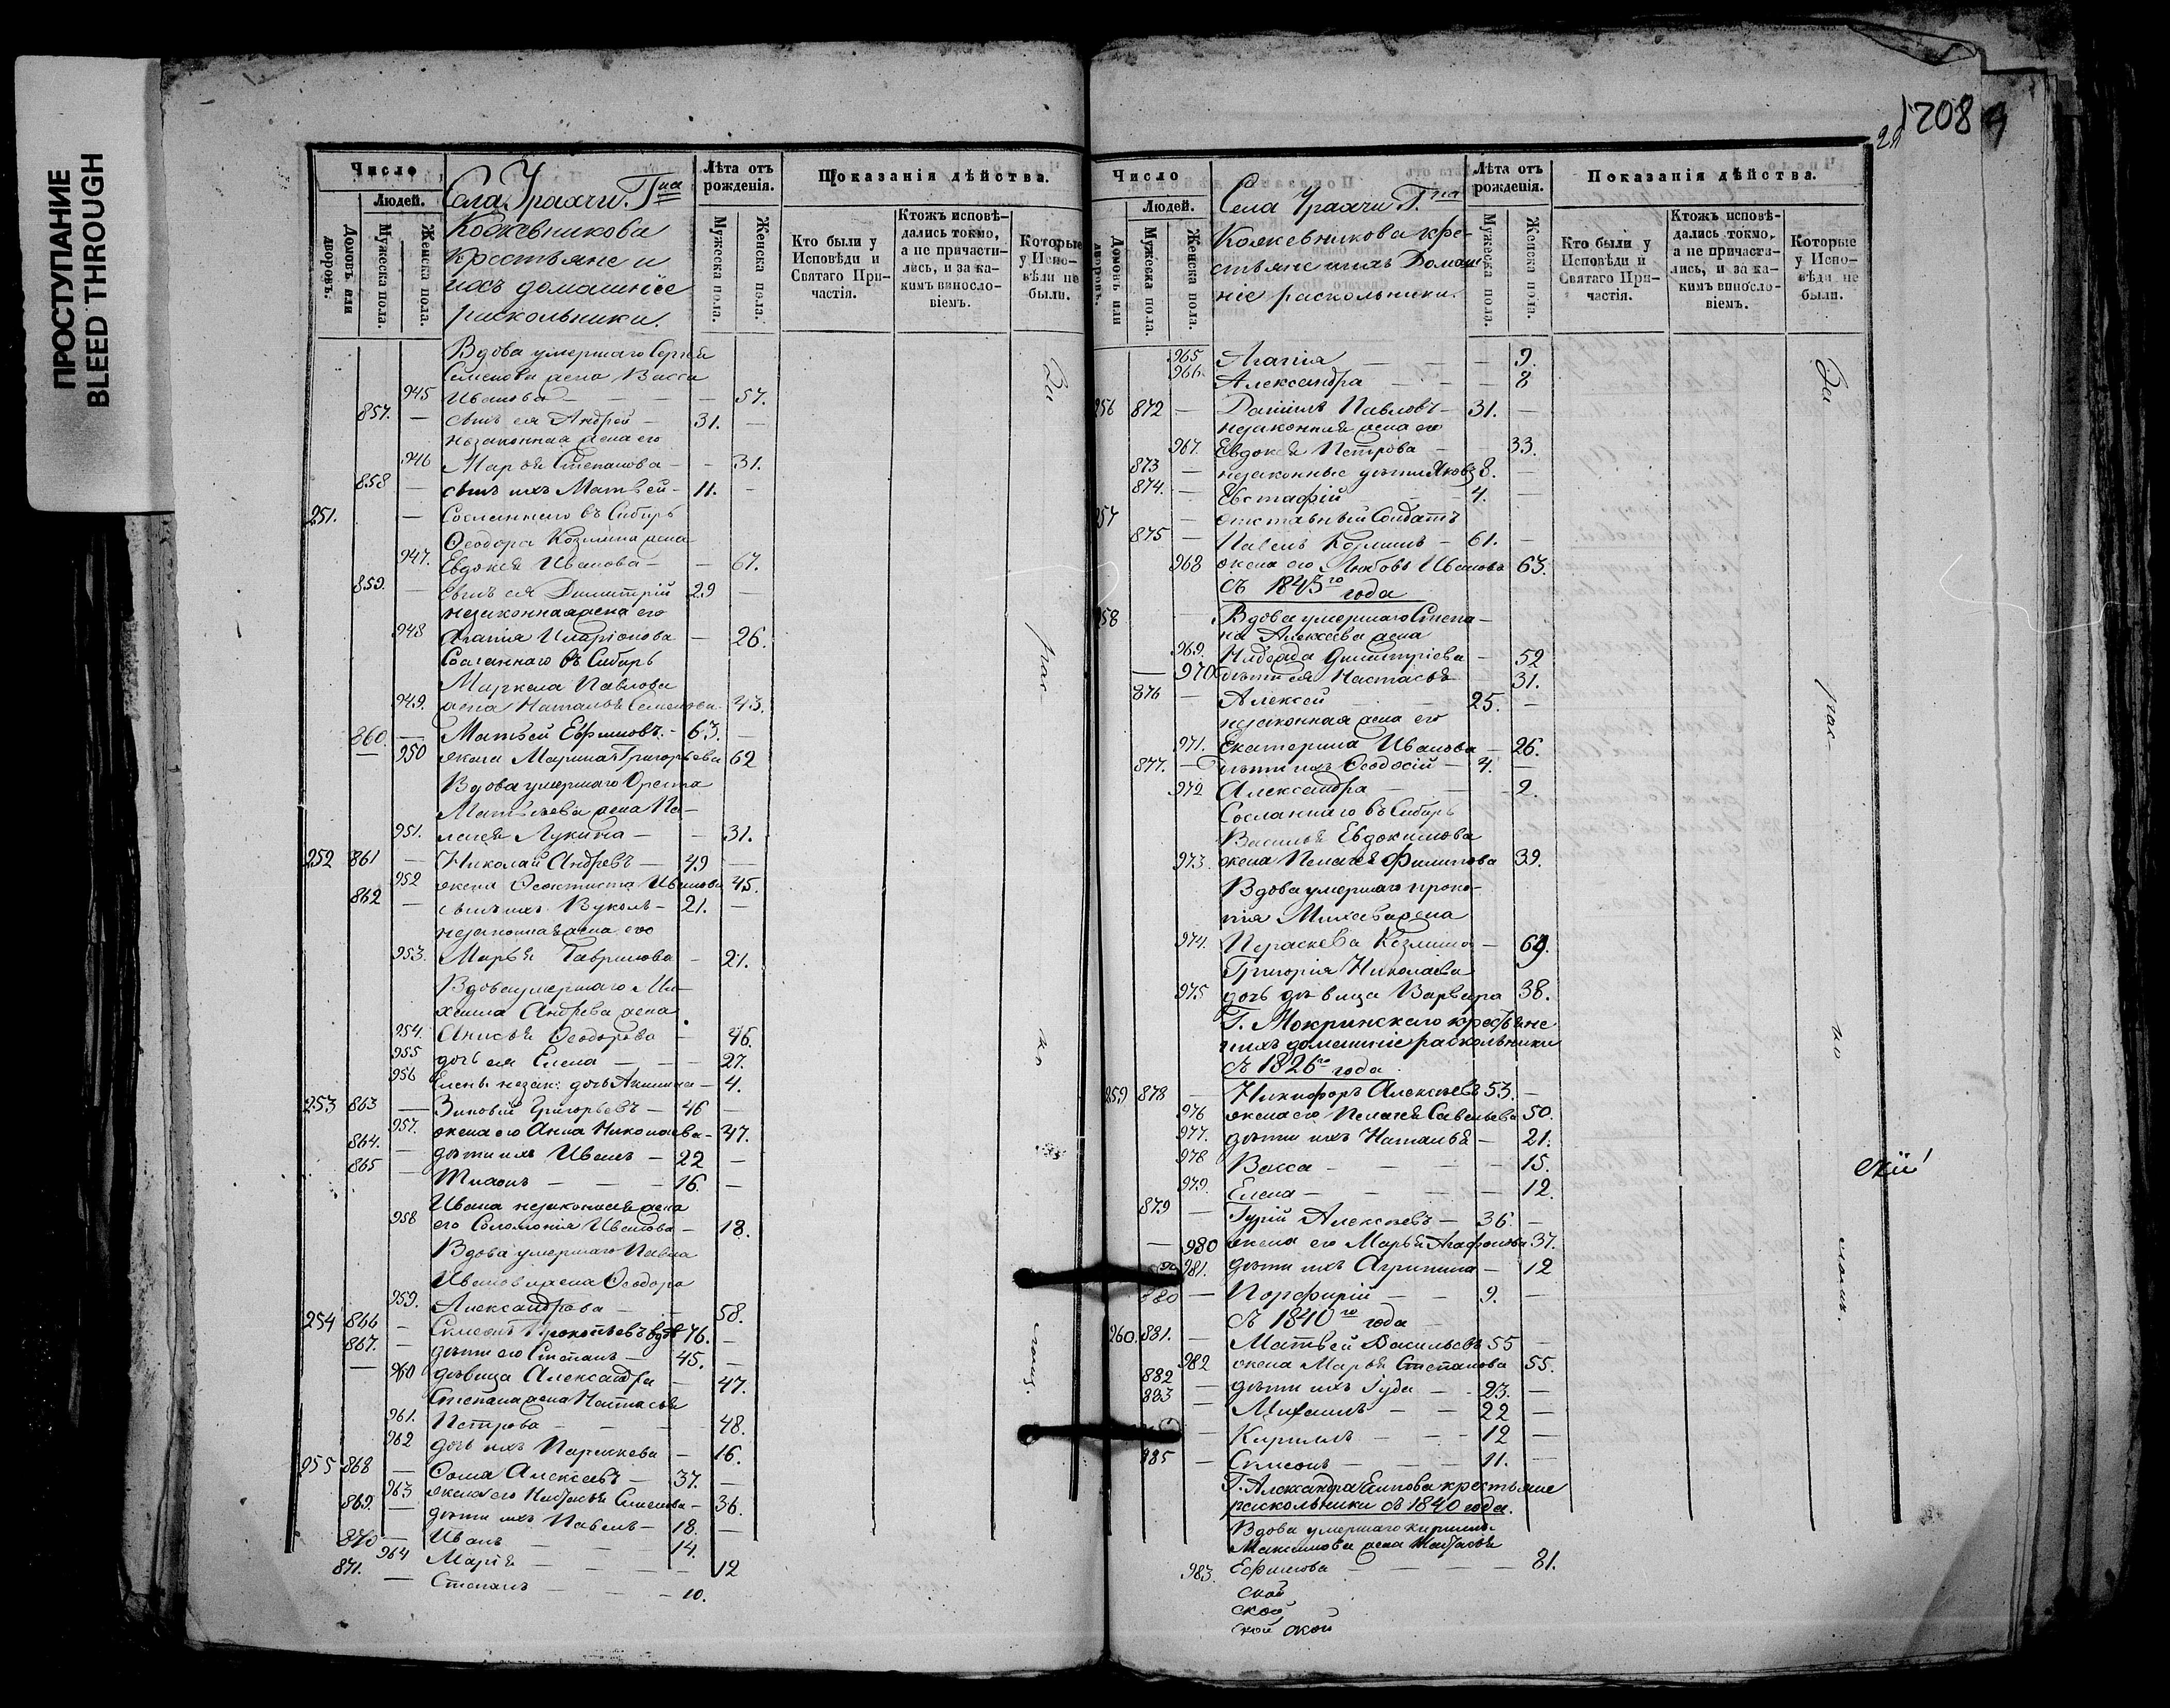 ПРОСТУПАНИЕ
BLEED THROUGH
1208
Число
Людей.
Домовъ или дворовъ.
Мужеска пола.
Женска пола.
Села Урахчи Г-на
Кожевникова
крестьяне и
ихъ домашніе
раскольники.
Лѣта отъ рожденія.
Мужеска пола.
Женска пола.
Показанія дѣйства.
Кто были у Исповѣди и Святаго Причастія.
Ктожъ исповѣдались токмо, а не причастились, и за какимъ винословіемъ.
Которые у Исповѣди не были.
Вдова умершаго Сергѣя
Семенова жена Васса
945 Иванова — 57.
857. — сынъ ея Андрей — 31. —
незаконная жена его
946 Марья Степанова — 31.
858 — сынъ ихъ Матвей — 11. —
251. — Сосланнаго въ Сибирь
Ѳеодора Козмина жена
947. Евдокея Иванова — 67.
859. — сынъ ея Димитрій 29 —
незаконная жена его
948 Агапія Иларіонова — 26.
Сосланнаго въ Сибирь
Маркела Павлова
949. жена Наталья Семенова 43.
860. — Матвей Ефимовъ — 63. —
950 жена Марина Григорьева 62
Вдова умершаго Ореста
Матвѣева жена Пе-
951. лагея Лукина — 31.
252 861 — Николай Андревъ — 49 —
952 жена Ѳеоктиста Иванова 45.
862 — сынъ ихъ Вуколъ — 21. —
незаконная жена его
953. Марья Гаврилова — 21.
Вдова умершаго Ми-
хаила Андрева жена
954. Анисья Ѳеодорова — 46.
955 дочь ея Елена — 27.
956 Елены незак: дочь Акилина — 4.
253 863 — Зиновій Григорьевъ — 46 —
957. жена его Анна Николаева — 47.
864. — дѣти ихъ Иванъ — 22 —
865 — — 16. —
Ивана незаконная жена
958 его Соломонія Иванова — 18.
Вдова умершаго Павла
Иванова жена Ѳеодора
959. Александрова — 58.
254 866 — Симеонъ Прокопьевъ вдов 76. —
867. — дѣти его Степанъ — 45. —
960 дѣвица Александра — 47.
Степана жена Настасья
961. Петрова — 48.
962 дочь ихъ Параскева — 16.
255 868 — Ѳома Алексеевъ — 37. —
963 жена его Настасья Семенова — 36.
869. — дѣти ихъ Павелъ — 18. —
870 — Иванъ — 14.
964 Марія — 12
871. — Степанъ — 10.
За
рас
ко
Число
Людей.
Домовъ или дворовъ.
Мужеска пола.
Женска пола.
Села Урахчи Г-на
Кожевникова кре-
стьяне и ихъ домаш
ніе раскольники.
Лѣта отъ рожденія.
Мужеска пола.
Женска пола.
Показанія дѣйства.
Кто были у Исповѣди и Святаго Причастія.
Ктожъ исповѣдались токмо, а не причастились, и за какимъ винословіемъ.
Которые у Исповѣди не были.
965 Агапія — 9.
966 Александра — 8
256 872 — Даниилъ Павловъ — 31. —
незаконная жена его
967. Евдокея Петрова — 33.
873 — незаконные дѣти Яковъ 8. —
874. — Евстафій — 4. —
257 — отставный Солдатъ
875 — Павелъ Козминъ — 61. —
968 жена его Любовь Иванова 63.
съ 1843го года
258 — Вдова умершаго Степа-
на Алексеева жена
969. Димитріева — 52
970 дѣти ея Настасья — 31.
876 — Алексей — 25. —
незаконная жена его
971. Екатерина Иванова — 26.
877. — дѣти ихъ Ѳеодосій — 4. —
972 Александра — 2.
Сосланнаго въ Сибирь
Василья Евдокимова
973. жена Пелагея Филипова 39.
Вдова умершаго Проко-
пія Михеева жена
974. Параскева Козмина — 69.
Григорія Николаева
975 дочь дѣвица Варвара 38.
Г. Мокринскаго крестьяне
и ихъ домашніе раскольники
съ 1826го года
259 878 — Никифоръ Алексеевъ 53. —
976 жена его Пелагея Савельева 50.
977. дѣти ихъ Наталья — 21.
978 Васса — 15.
979. Елена — 12.
879 — Гурій Алексеевъ — 36. —
980 жена его Марья Агафонова 37.
981. дѣти ихъ Агрипина — 12
880 — Порфирій — 9. —
съ 1840го года
260. 881. — Матвей Васильевъ 55 —
982 жена Марья Степанова 55.
882 — дѣти ихъ Іуда — 23. —
883 — Михаилъ — 22 —
— Кириллъ — 12 —
885 — Симеонъ — 11. —
Г. Александра Есипова крестьяне
раскольники съ 1840 года.
Вдова умершаго Кирилы
Максимова жена Настасья
983. Ефимова — 81.
ской
ской
ской ской
За
рас-
ко